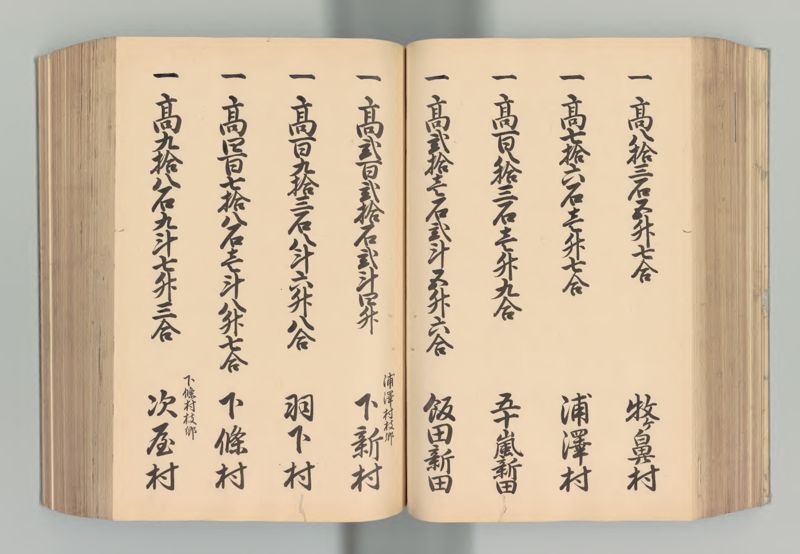 一 高八拾三石五升七合 牧ケ鼻村
一 高七拾六石壱升七合 浦澤村
一 高百八拾三石壱升九合 五十嵐新田
一 高弐拾壱石弐斗五升六合 飯田新田
浦澤村枝郷
一 高弐百弐拾石弐斗四升 下新村
一 高百九拾三石八斗六升八合 羽下村
一 高四百七拾八石壱斗八升七合 下條村
下條村枝郷
一 高九拾八石九斗七升三合 次屋村